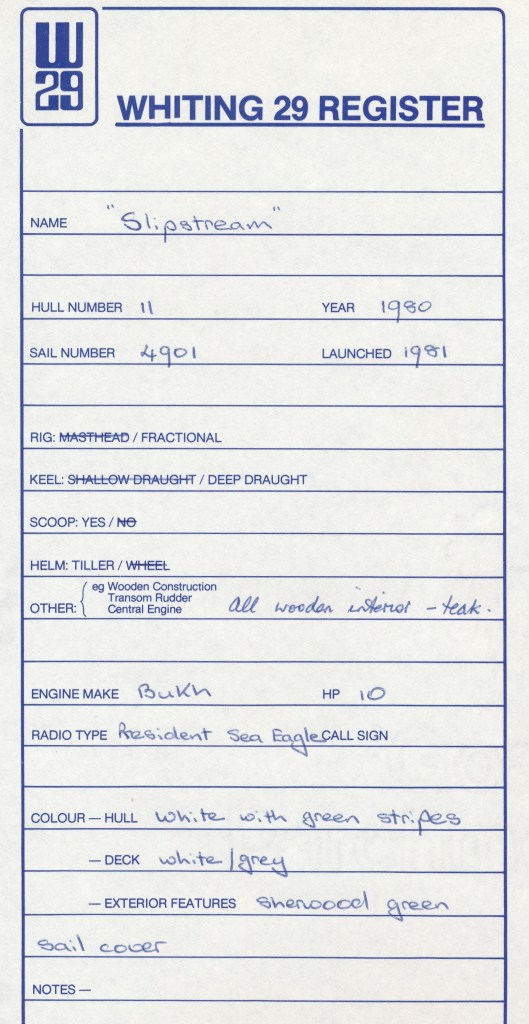 W
29
WHITING 29 REGISTER
NAME "Slipstream"
HULL NUMBER 11 YEAR 1980
SAIL NUMBER 4901 LAUNCHED 1981
RIG: MASTHEAD / FRACTIONAL
KEEL: SHALLOW DRAUGHT / DEEP DRAUGHT
SCOOP: YES / NO
HELM: TILLER / WHEEL
eg Wooden Construction
Transom Rudder
OTHER: Central Engine All wooden interior - teak.
ENGINE MAKE Bukh HP 10
RADIO TYPE President Sea Eagle CALL SIGN
COLOUR — HULL white with green stripes
— DECK white/grey
— EXTERIOR FEATURES sherwood green
sail cover
NOTES —